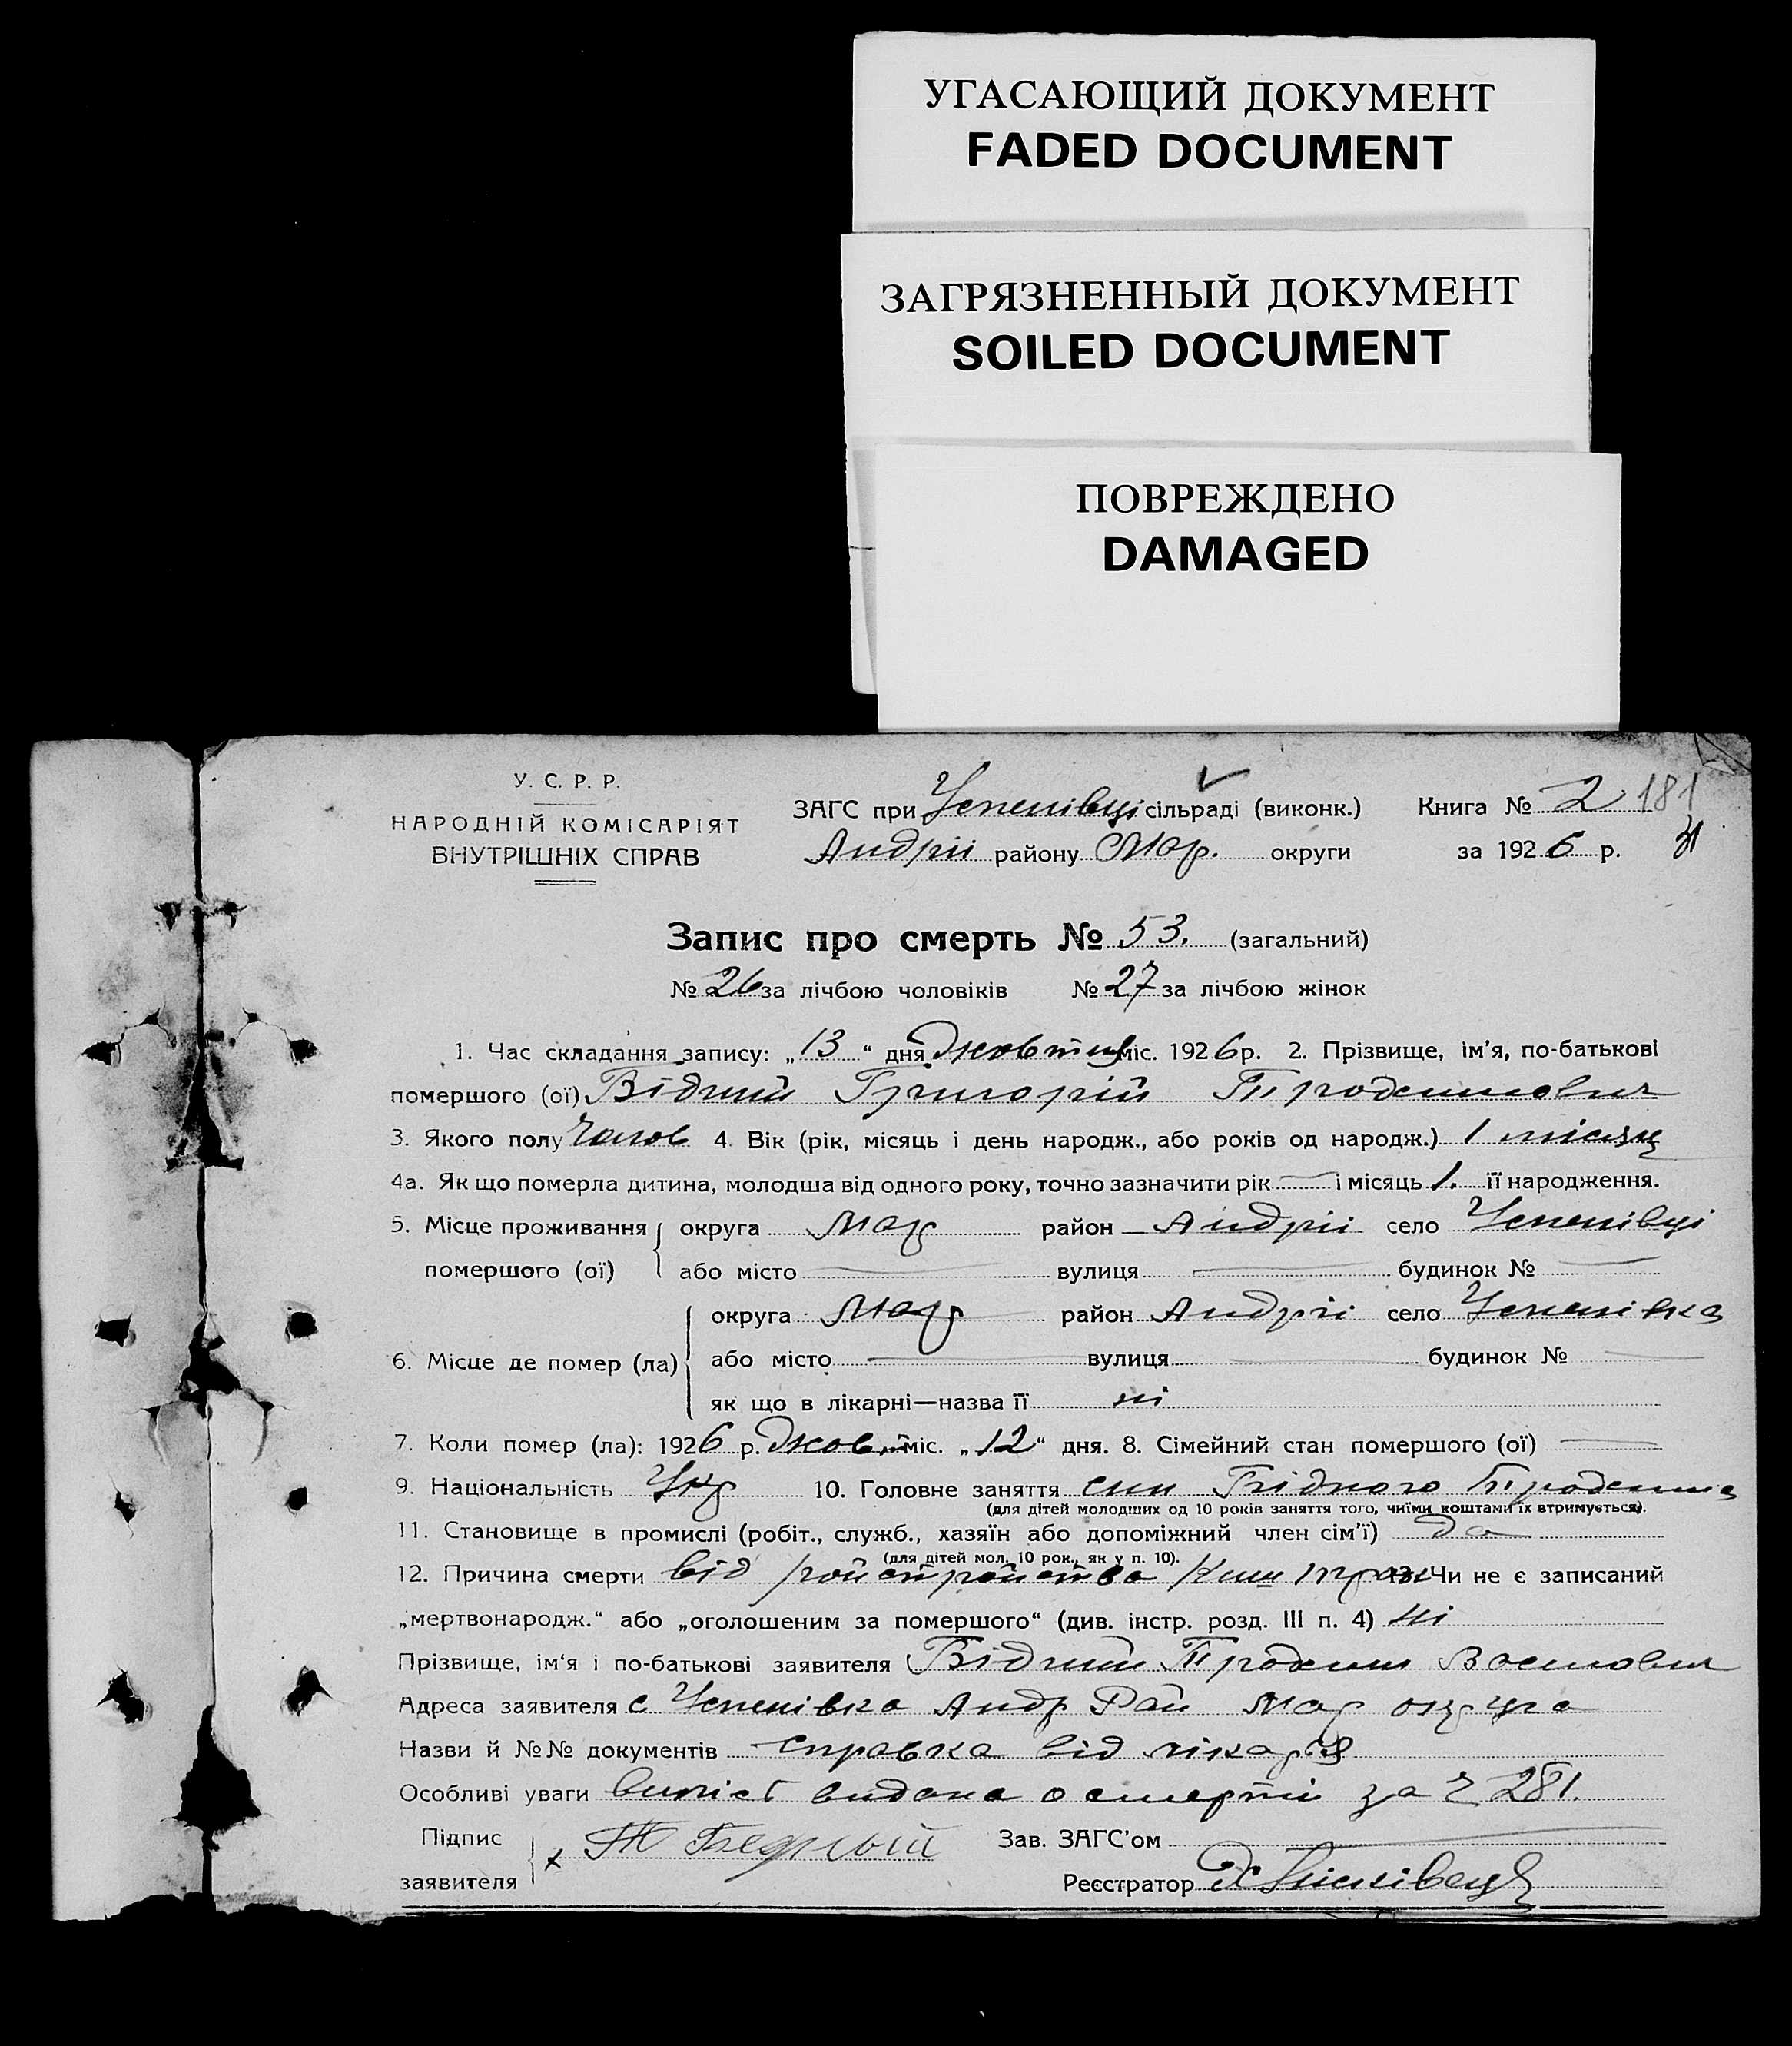 УГАСАЮЩИЙ ДОКУМЕНТ
FADED DOCUMENT
ЗАГРЯЗНЕННЫЙ ДОКУМЕНТ
SOILED DOCUMENT
ПОВРЕЖДЕНО
DAMAGED
У. С. Р. Р.
НАРОДНІЙ КОМІСАРІЯТ
ВНУТРІШНІХ СПРАВ
ЗАГС при Успенівці сільраді (виконк.) Книга № 2 181
Андріі району Мар. округи за 1926 р. 31
Запис про смерть № 53. (загальний)
№ 26 за лічбою чоловіків № 27 за лічбою жінок
1. Час складання запису: „13“ дня жовтня міс. 1926 р. 2. Прізвище, ім'я, по-батькові
помершого (ої) Бідний Григорій
3. Якого полу Чолов 4. Вік (рік, місяць і день народж., або років од народж.) 1 місяць
4а. Як що померла дитина, молодша від одного року, точно зазначити рік — і місяць 1. її народження.
5. Місце проживання округа Мар район Андріі село Успенівці
помершого (ої) або місто — вулиця — будинок № —
округа Мар район Андріі село Успенівка
6. Місце де помер (ла) або місто — вулиця — будинок № —
як що в лікарні—назва її ні
7. Коли помер (ла): 1926 р. жовт міс. „12“ дня. 8. Сімейний стан помершого (ої) —
9. Національність Укр 10. Головне заняття син Бідного
(для дітей молодших од 10 років заняття того, чиїми коштами їх втримується).
11. Становище в промислі (робіт., служб., хазяїн або допоміжний член сім'ї) да
(для дітей мол. 10 рок., як у п. 10).
12. Причина смерти від 13. Чи не є записаний
„мертвонародж.“ або „оголошеним за помершого“ (див. інстр. розд. III п. 4) ні
Прізвище, ім'я і по-батькові заявителя Бідний
Адреса заявителя с Успенівка Андр Рай Мар округа
Назви й №№ документів справка від лікаря
Особливі уваги випісь видана о смерті за № 281.
Підпис
заявителя х Бедный
Зав. ЗАГС'ом —
Реєстратор